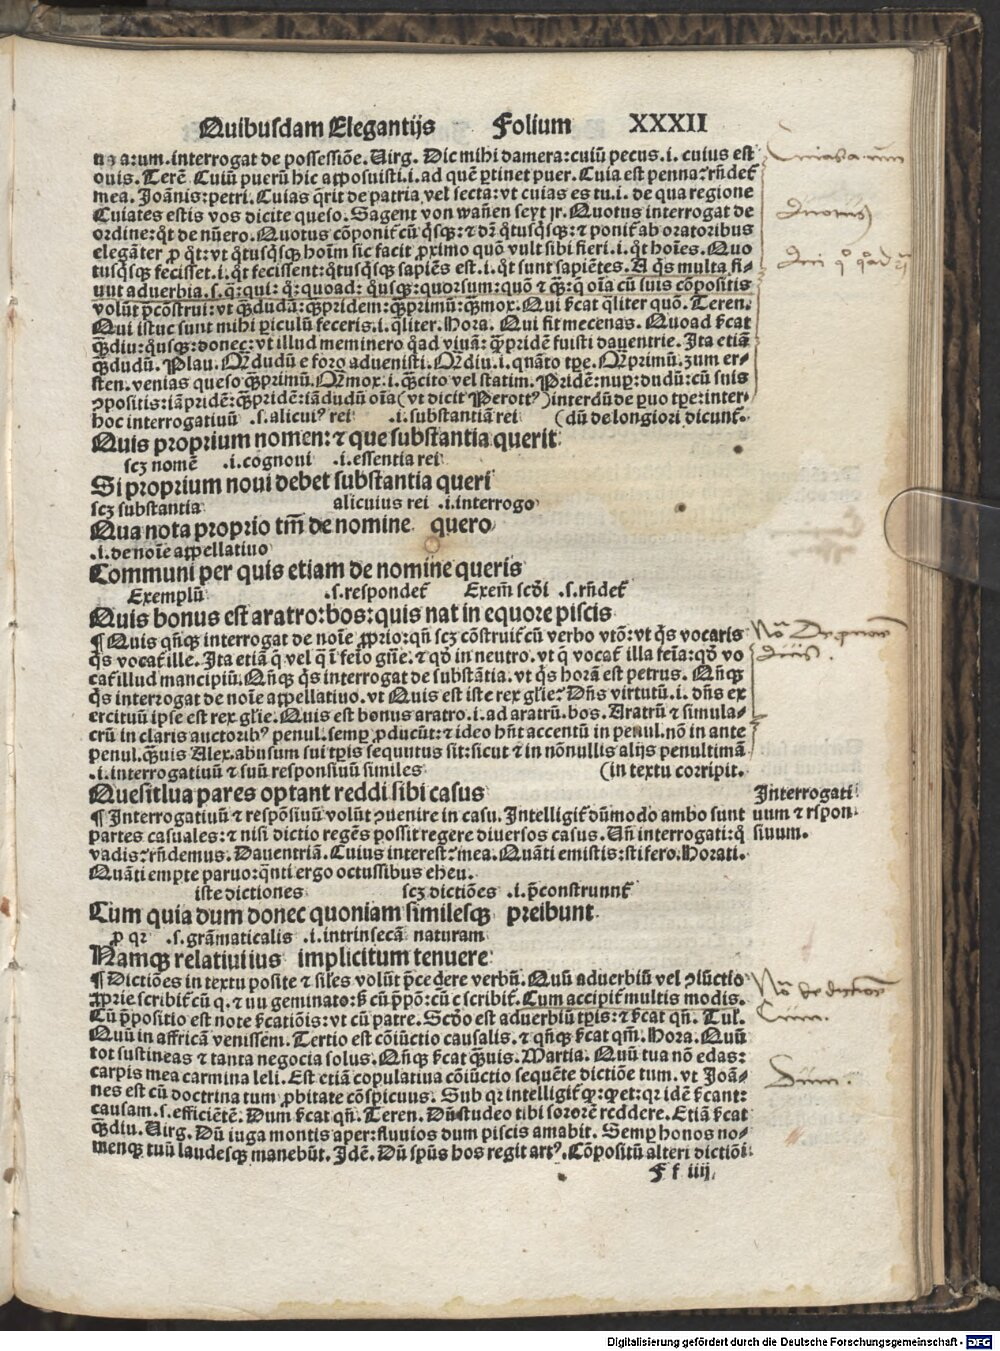 Quibusdam Elegantijs Folium XXXII
arum.interrogat de possessiōe.Uirg. Dic mihi damera:cuiū pecus.i. cuius est
ouis.Terē. Cuiū puerū hic apposuisti.i.ad quē ꝑtinet puer. Cuia est penna:rn̄det̄
mea. Joānis:petri. Cuias q̄rit de patria vel secta:vt cuias es tu.i. de qua regione
Cuiates estis vos dicite queso. Sagent von wan̄en seyt jr. Quotus interrogat de
ordine:q̄t de nūero. Quotus cōponit̄ cū q̄sqꝫ:⁊ dr̄ q̄tusq̄sqꝫ:⁊ ponit̄ ab oratoribus
elegāter ꝓ q̄t:vt q̄tusq̄sqꝫ hoīm sic facit ꝓximo quō vult sibi fieri.i.q̄t hoīes. Quo
tusq̄sqꝫ fecisset.i.q̄t fecissent:q̄tusq̄sqꝫ sapiēs est.i.q̄t sunt sapiētes. A q̄s multa fi/
uut aduerbia.s.q̄:qui: q̄:quoad: q̄usqꝫ:quorsum:quō ⁊ q̄ꝫ:q̄ oīa cū suis cōpositis
volūt p̄cōstrui:vt q̄ꝫdudū:q̄ꝫpridem:q̄ꝫprimū:q̄ꝫmox. Qui s̄cat q̄liter quō. Teren.
Qui istuc sunt mihi ꝑiculū feceris.i.q̄liter. Hora. Qui fit mecenas. Quoad s̄cat
q̄ꝫdiu:q̄usqꝫ:donec:vt illud meminero q̄ad viuā: q̄ꝫpridē fuisti dauentrie. Ita etiā
q̄ꝫdudū. Plau. Qꝫdudū e foro aduenisti. Qꝫdiu.i.quāto tꝑe. Qꝫprimū.zum er/
sten.venias queso q̄ꝫprimū. Qꝫmox.i.q̄ꝫcito vel statim. Pridē:nuꝑ:dudū:cū suis
ꝯpositis:iāpridē:q̄ꝫpridē:iādudū oīa(vt dicit Perottꝰ)interdū de ꝑuo tꝑe:inter/
hoc interrogatiuū .s.alicuiꝰ rei .i.substantiā rei (dū de longiori dicunt̄.
Quis proprium nomen:⁊ que substantia querit:
scꝫ nomē .i.cognoui .i.essentia rei
Si proprium noui debet substantia queri
scꝫ substantia alicuius rei .i.interrogo
Qua nota proprio tm̄ de nomine quero
.i.de noīe appellatiuo
Communi per quis etiam de nomine queris
Exemplū .s.respondet̄ Exem̄ scd̄i .s.rn̄det̄
Quis bonus est aratro:bos:quis nat in equore piscis
¶ Quis qn̄qꝫ interrogat de noīe ꝓprio:qn̄ scꝫ cōstruit̄ cū verbo vtō:vt q̄s vocaris
q̄s vocat̄ ille. Ita etiā q̄ vel q̄ ī feīo gn̄e.⁊ qd̄ in neutro.vt q̄ vocat̄ illa feīa:qd̄ vo
cat̄ illud mancipiū.Qn̄qꝫ q̄s interrogat de substātia.vt q̄s horā est petrus. Qn̄qꝫ
q̄s interrogat de noīe appellatiuo.vt Quis est iste rex gl'ie? Dn̄s virtutū.i.dn̄s ex
ercituū ipse est rex gl'ie. Quis est bonus aratro.i.ad aratrū.bos. Aratrū ⁊ simula/
crū in claris auctoribꝰ penul.semꝑ ꝓducūt:⁊ ideo hn̄t accentū in penul.nō in ante
penul.q̄ꝫuis Alex.abusum sui tꝑis sequutus sit:sicut ⁊ in nōnullis alijs penultimā
.i.interrogatiuū ⁊ suū responsiuū similes (in textu corripit.
Quesitiua pares optant reddi sibi casus
¶ Interrogatiuū ⁊ respōsiuū volūt ꝯuenire in casu. Intelligit̄ dūmodo ambo sunt
partes casuales:⁊ nisi dictio regēs possit regere diuersos casus. Un̄ interrogati:q̄
vadis?rn̄demus. Dauentriā. Cuius interest?mea. Quāti emistis:stifero. Horati.
Quāti empte paruo:q̄nti ergo octussibus eheu.
iste dictiones scꝫ dictiōes .i.p̄construunt̄
Cum quia dum donec quoniam similesqꝫ preibunt
ꝓ qꝛ .s.grāmaticalis .i.intrinsecā naturam
Namqꝫ relatiui ius implicitum tenuere
¶ Dictiōes in textu posite ⁊ siles volūt p̄cedere verbū. Quū aduerbiū vel ꝯiūctio
ꝓprie scribit̄ cū q.⁊ uu geminato:s̄ cū p̄pō:cū c scribit̄. Cum accipit̄ multis modis.
Cū p̄positio est note s̄catiōis:vt cū patre. Scd̄o est aduerbiū tꝑis:⁊ s̄cat qn̄. Tul.
Quū in affricā venissem. Tertio est cōiūctio causalis.⁊ qn̄qꝫ s̄cat qm̄. Hora. Quū
tot sustineas ⁊ tanta negocia solus. Qn̄qꝫ s̄cat q̄ꝫuis. Martia. Quū tua nō edas:
carpis mea carmina leli. Est etiā copulatiua cōiūctio sequēte dictiōe tum.vt Joā/
nes est cū doctrina tum ꝓbitate cōspicuus. Sub qꝛ intelligit̄ qꝛ:ꝓet:qꝛ idē s̄cant:
causam.s.efficiētē. Dum s̄cat qn̄. Teren. Dū studeo tibi sororē reddere. Etiā s̄cat
q̄ꝫdiu. Uirg. Dū iuga montis aper:fluuios dum piscis amabit. Semꝑ honos no/
menqꝫ tuū laudesqꝫ manebūt. Idē. Dū sp̄us hos regit artꝰ. Cōpositū alteri dictiōi
F f iiij
Cuias a um
Quotus
Nō De pronoie
Quis.
Interrogati
uum ⁊ rspon
siuum.
Nō de dictione
Cum.
Dum.
Digitalisierung gefördert durch die Deutsche Forschungsgemeinschaft - DFG